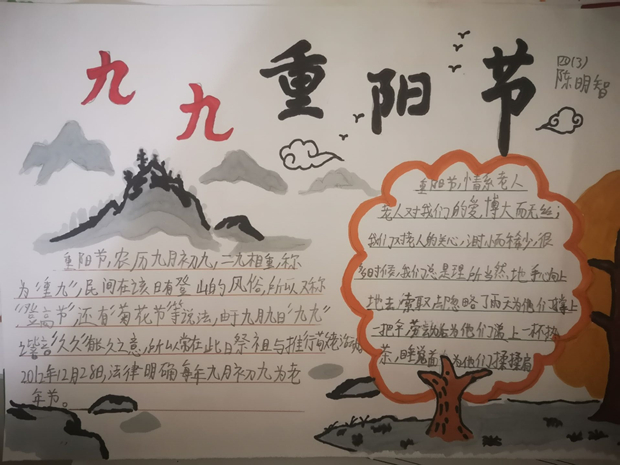 九九重阳节
四(3)
陈明智
重阳节,农历九月初九,二九相重,称
为"重九",民间在该日有登山的风俗,所以又称
"登高节"还有菊花节等说法,由于九月九日"九九"
谐音"久久"都久之意,所以常在此日祭祖与推行敬老活动
2012年12月28日,法律明确每年九月初九为老
年节。
重阳节,情系老人
老人对我们的爱,博大而无
我们对老人的关心,小而 少,很
多时候,我们总是理所当然地手心向上
地去索取 忽略了雨天为他们撑上
一把伞 劳动后为他们递上一杯热
茶,睡觉 为他们揉揉肩